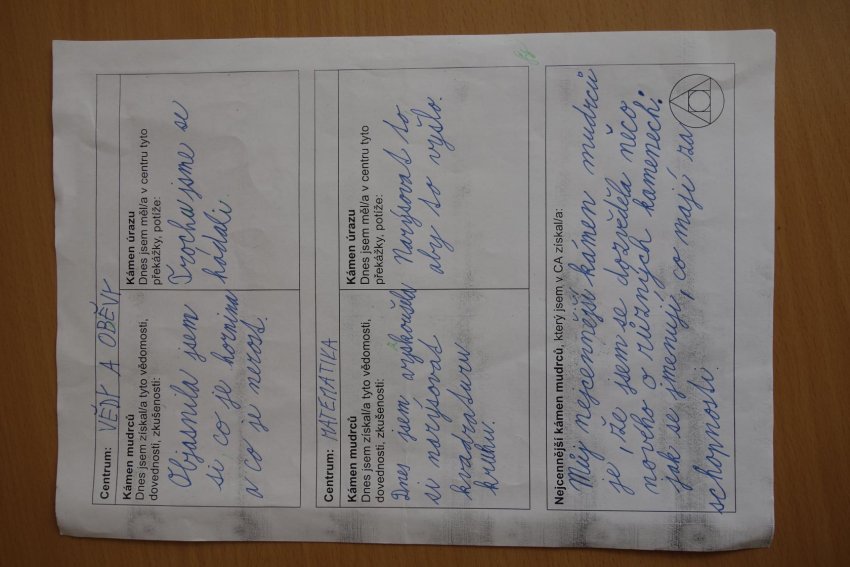 Centrum: VĚDY A OBĚVY
Kámen mudrců
Dnes jsem získal/a tyto vědomosti,
dovednosti, zkušenosti:
Objasnila jsem
si co je hornina
a co je nerost.
Kámen úrazu
Dnes jsem měl/a v centru tyto
překážky, potíže:
Trochu jsme se
hádali.
Centrum: MATEMATIKA
Kámen mudrců
Dnes jsem získal/a tyto vědomosti,
dovednosti, zkušenosti:
Dnes jsem vyzkoušela
si narýsovat
kvadraturu
kruhu.
Kámen úrazu
Dnes jsem měl/a v centru tyto
překážky, potíže:
Narýsovat to
aby to vyšlo.
Nejcennější kámen mudrců, který jsem v CA získal/a:
Můj nejcennější kámen mudrců
je, že jsem se dozvěděla něco
nového o různých kamenech:
jak se jmenují, co mají za
schopnosti